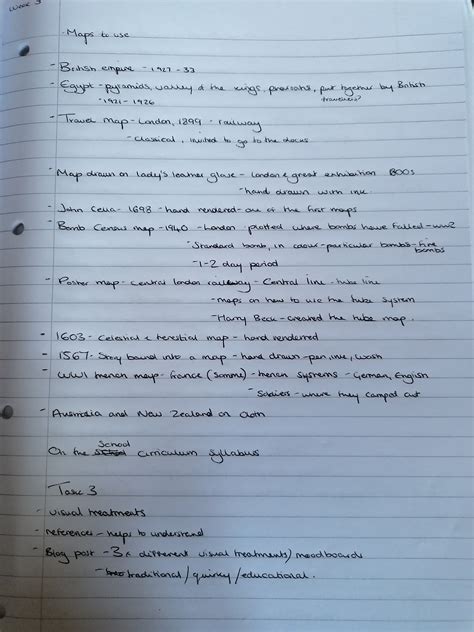 Week 3
Maps to use
- British empire - 1927-33
- Egypt - pyramids, valley of the kings, pharoahs, put together by British
travellers?
- 1921 - 1926
- Travel map - London, 1899 - railway
- classical, invited to go to the docks
- Map drawn on lady's leather glove - london & great exhibition 1800s
- hand drawn with ink
- John - 1698 - hand rendered - one of the first maps
- Bomb Census map - 1940 - London - plotted where bombs have falled - ww2
- Standard bomb, in colour - particular bombs - fire
bombs
- 1-2 day period
- Poster map - central london railway - Central line - tube line
- maps on how to use the tube system
- Harry Beck - created the tube map.
- 1603 - Celestial & terestial map - hand rendered
- 1567 - Story bound into a map - hand drawn - pen, ink, wash
- WW1 trench map - france (somme) - trench systems - German, English
- Soldiers - where they camped out
- Australia and New Zealand on
On the School cirriculum syllabus
Task 3
- visual treatments
- references - helps to understand
- Blog post - 3x different visual treatments / moodboards
- traditional / quirky / educational.